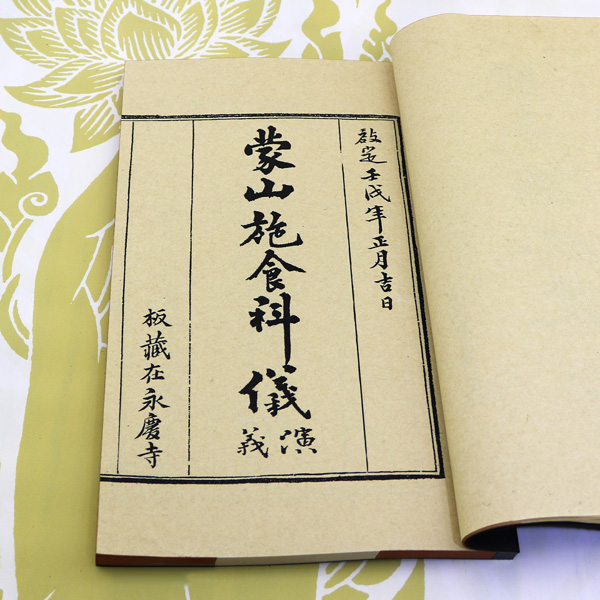 啟定壬戌年正月吉日
蒙山施食科儀
演義
板藏在永慶寺